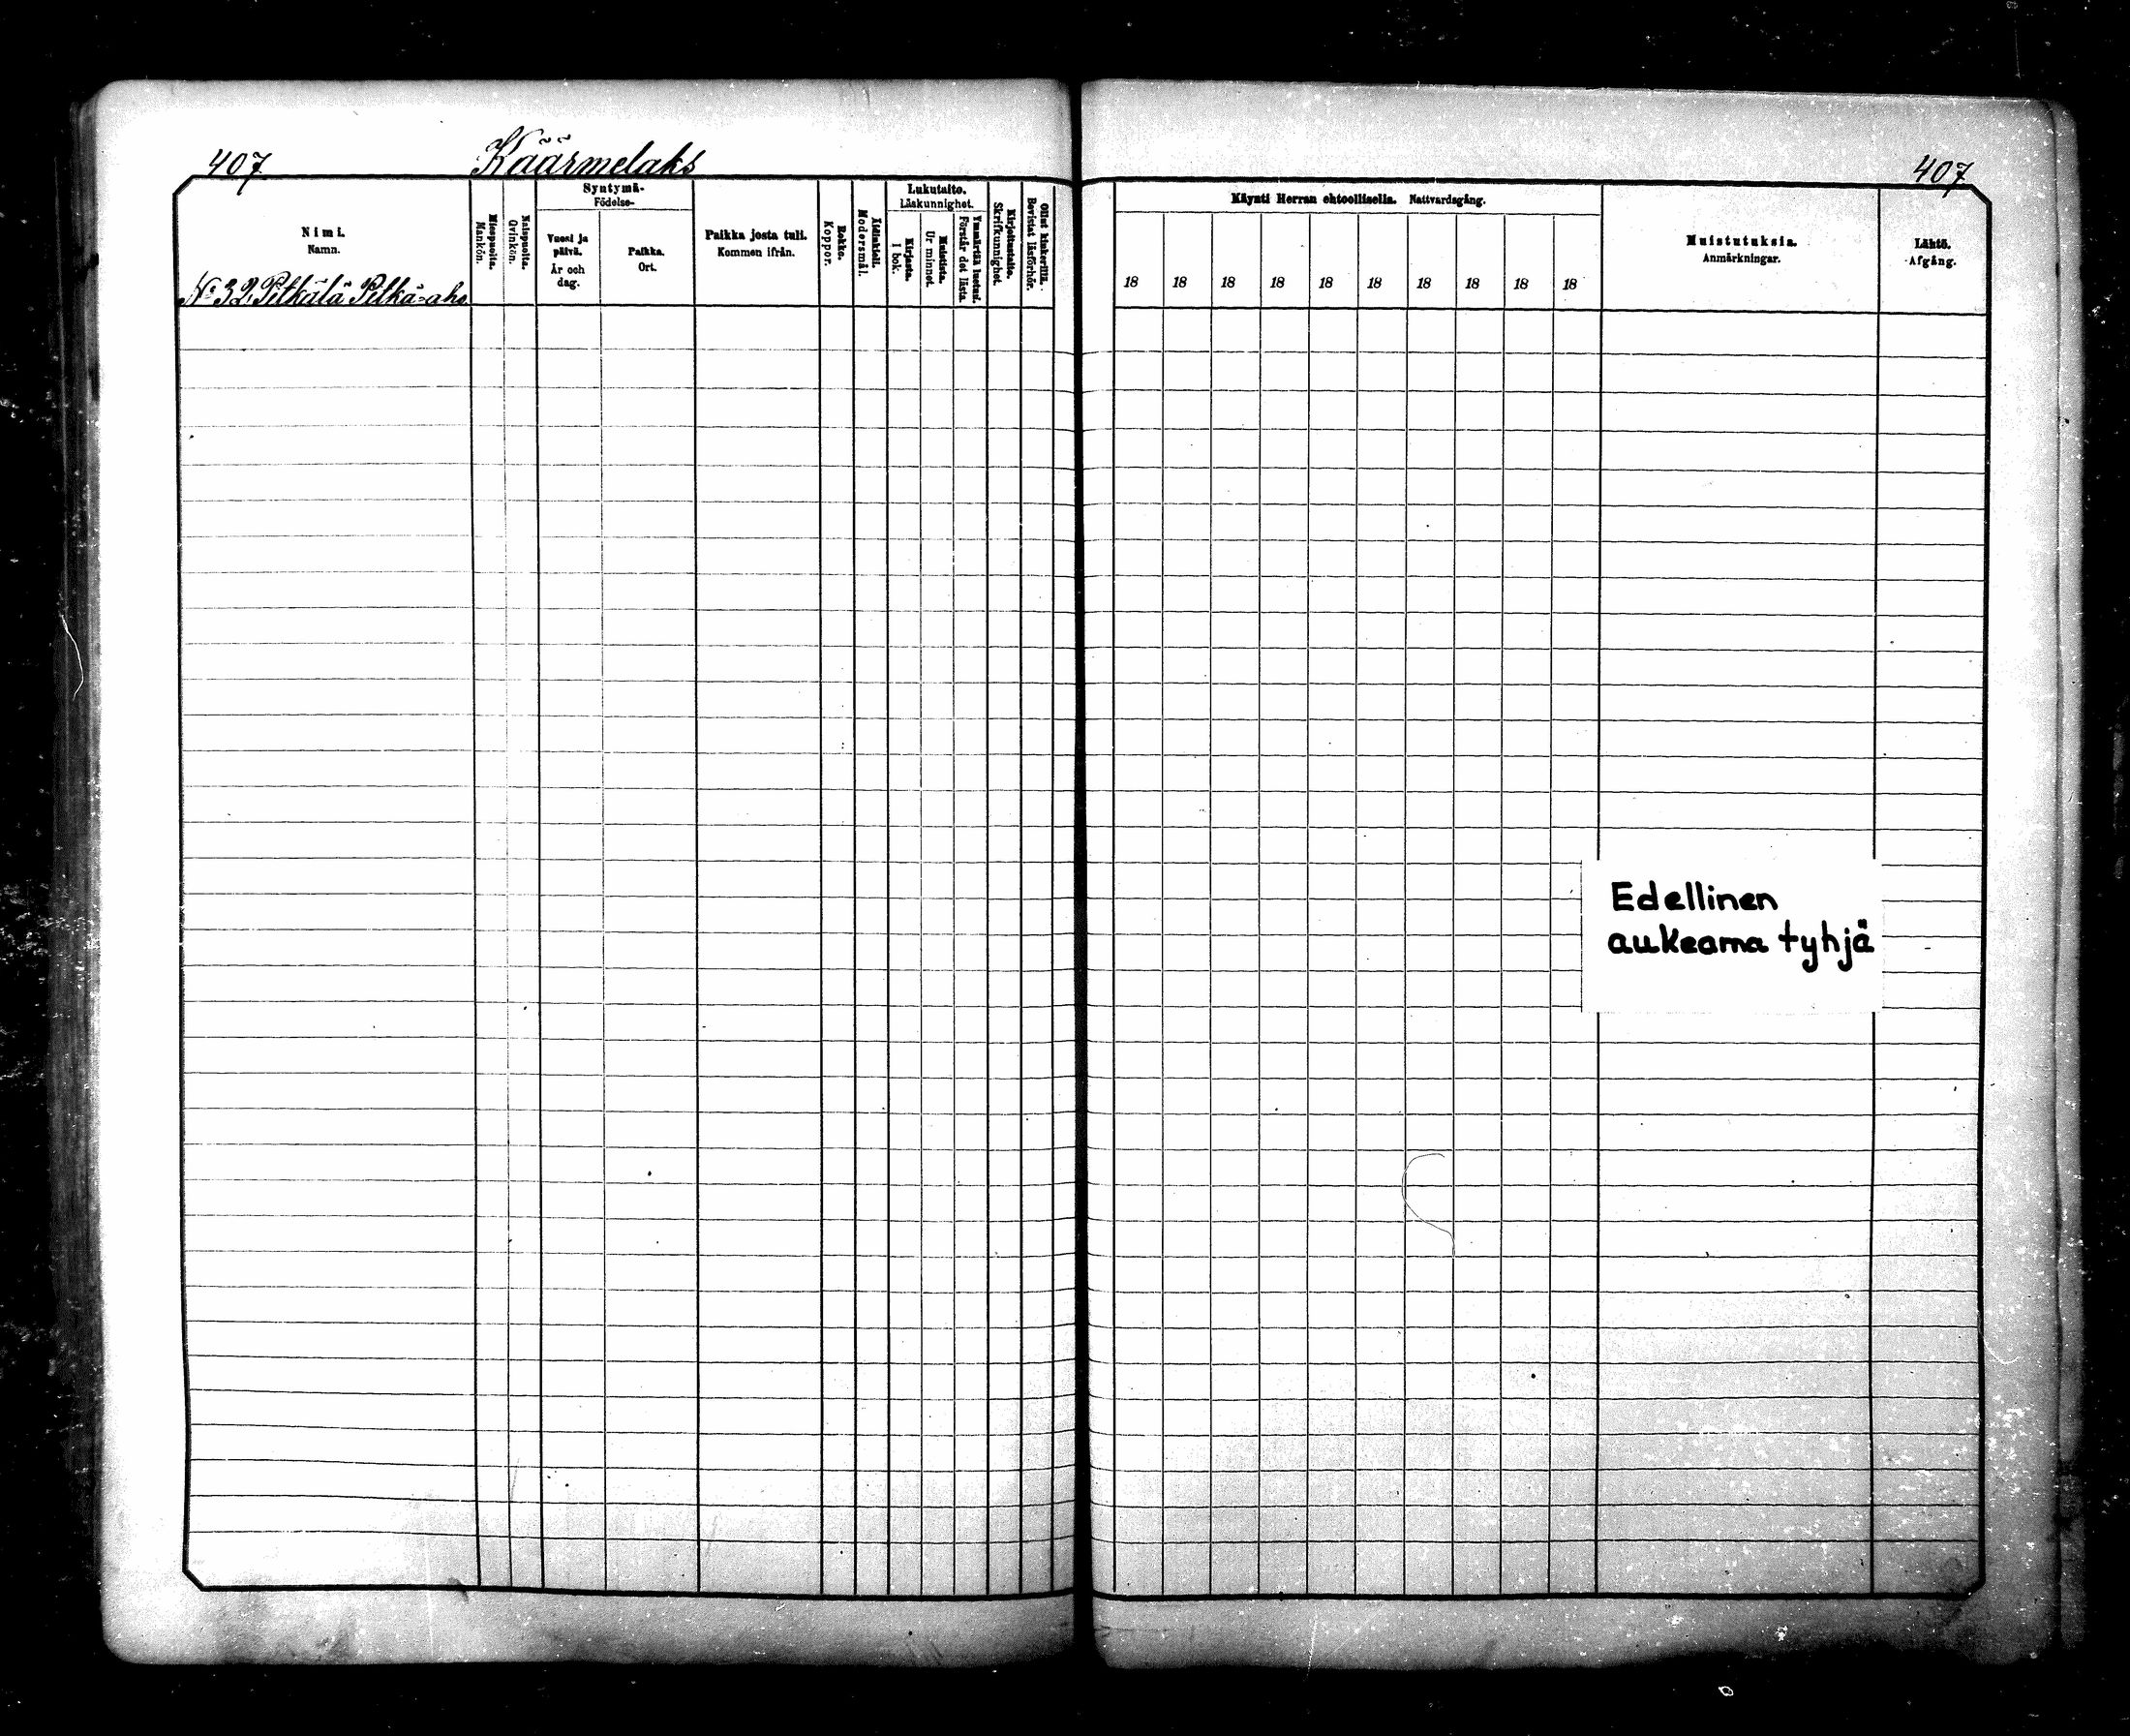 407 Käärmelaks 407
Nimi.
Namn.
Miespuolta.
Mankön.
Naispuolta.
Qvinkön.
Syntymä-
Födelse-
Vuosi ja
päivä.
År och
dag.
Paikka.
Ort.
Paikka josta tuli.
Kommen ifrån.
Rokko.
Koppor.
Äidinkieli.
Modersmål.
Lukutaito.
Läskunnighet.
Kirjasta.
I bok.
Muistista.
Ur minnet.
Ymmärtää luetun.
Förstår det lästa.
Kirjoitustaito.
Skrifkunnighet.
Ollut kinkerillä.
Bevistat läsförhör.
Käynti Herran ehtoollisella. Nattvardsgång.
18 18 18 18 18 18 18 18 18 18
Muistutuksia.
Anmärkningar.
Lähtö.
Afgång.
No 32. Pitkälä Pitkä-aho
Edellinen
aukeama tyhjä